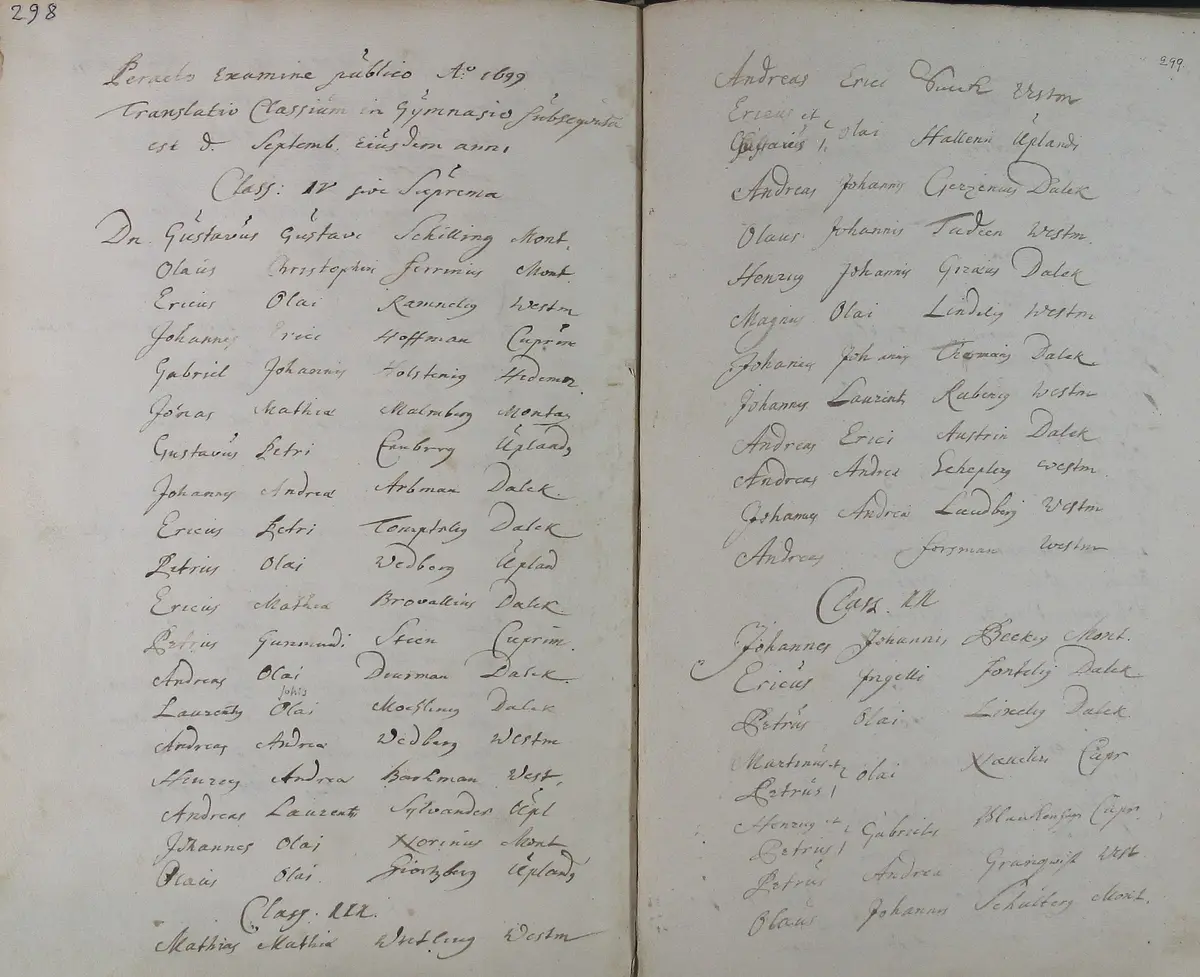 298
Peracto Examine püblico Ao 1699
Translatio Classiüm in Gÿmnasio sübseqüüta
est d. Septemb. eiüsdem anni
Class: IV sive Süprema
Dn. Güstavüs Güstavi Schilling Mont.
Olaüs Christopheri Ferrinius Mont.
Ericus Olai Ramnelig Westm
Johannes Erici Hoffman Cüprim
Gabriel Johannis Holstenig Hedemor.
Jonas Mathiæ Malmberg Montan
Gustavüs Petri Enberg Üpland
Johannes Andreæ Arbman Dalek.
Ericüs Petri Dalek
Petrüs Olai Wedberg Üpland
Ericüs Mathiæ Brovallius Dalek
Petrus Gunmundi Steen Cüprim.
Andreas Olai Duurman Dalek.
Johis
Laurents Olai Moesling Dalek
Andreas Andreæ Wedberg Westm
Henreg Andreæ Barkman West.
Andreas Laurenti Sylvander Üpl
Johannes Olai Norinus Mont
Olaüs Olai Giortzberg Üpland
Class. III.
Mathias Mathiæ Wretling Westm
299.
Andreas Erici Westm
Ericus et
Olai Hallenii Üplandi
Andreas Johannis Gezzenius Dalek
Olaus Johannis Tadeen Westm.
Henreg Johannis Dalek
Magnus Olai Lindelig Westm
Johannes Johannis Dalek
Johannes Laurenti Rubenig Westm
Andreas Erici Austrin Dalek
Andreas Andreæ Scheplerg Westm.
Johannes Andreæ Lundberg Westm
Andreas Forsman Westm
Class. II
Johannes Johannis Beckig Mont.
Ericüs Ingelli Fontelig Dalek
Petrüs Olai Linelig Dalek
Martinüs et
Petrüs Olai Cupr
Henreg et
Petrüs Gabrielis Cupr.
Petrüs Andreæ Granqwist West
Olaüs Johannis Schülterg Mont.